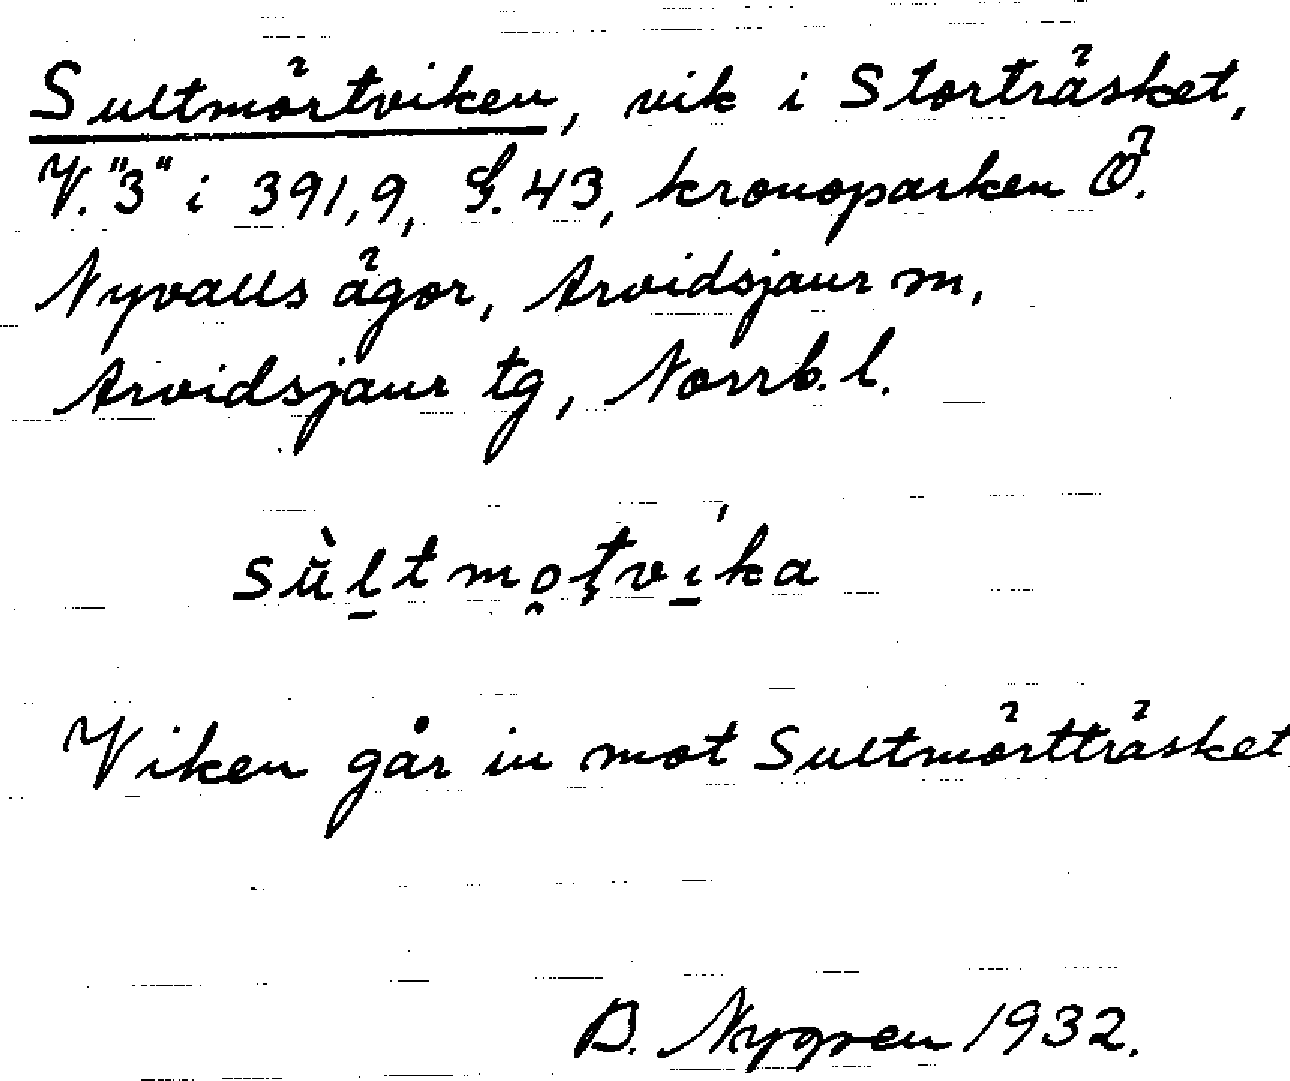 Sultmörtviken, vik i Storträsket,
V. "3" i 391,9, S. 43, kronoparken Ö.
Nyvalls ägor, Arvidsjaur m,
Arvidsjaur tg, Norrb. l.
sù̄l̲tmo̯ţvi̲'ka
Viken går in mot Sultmörtträsket
B. Nygren 1932.